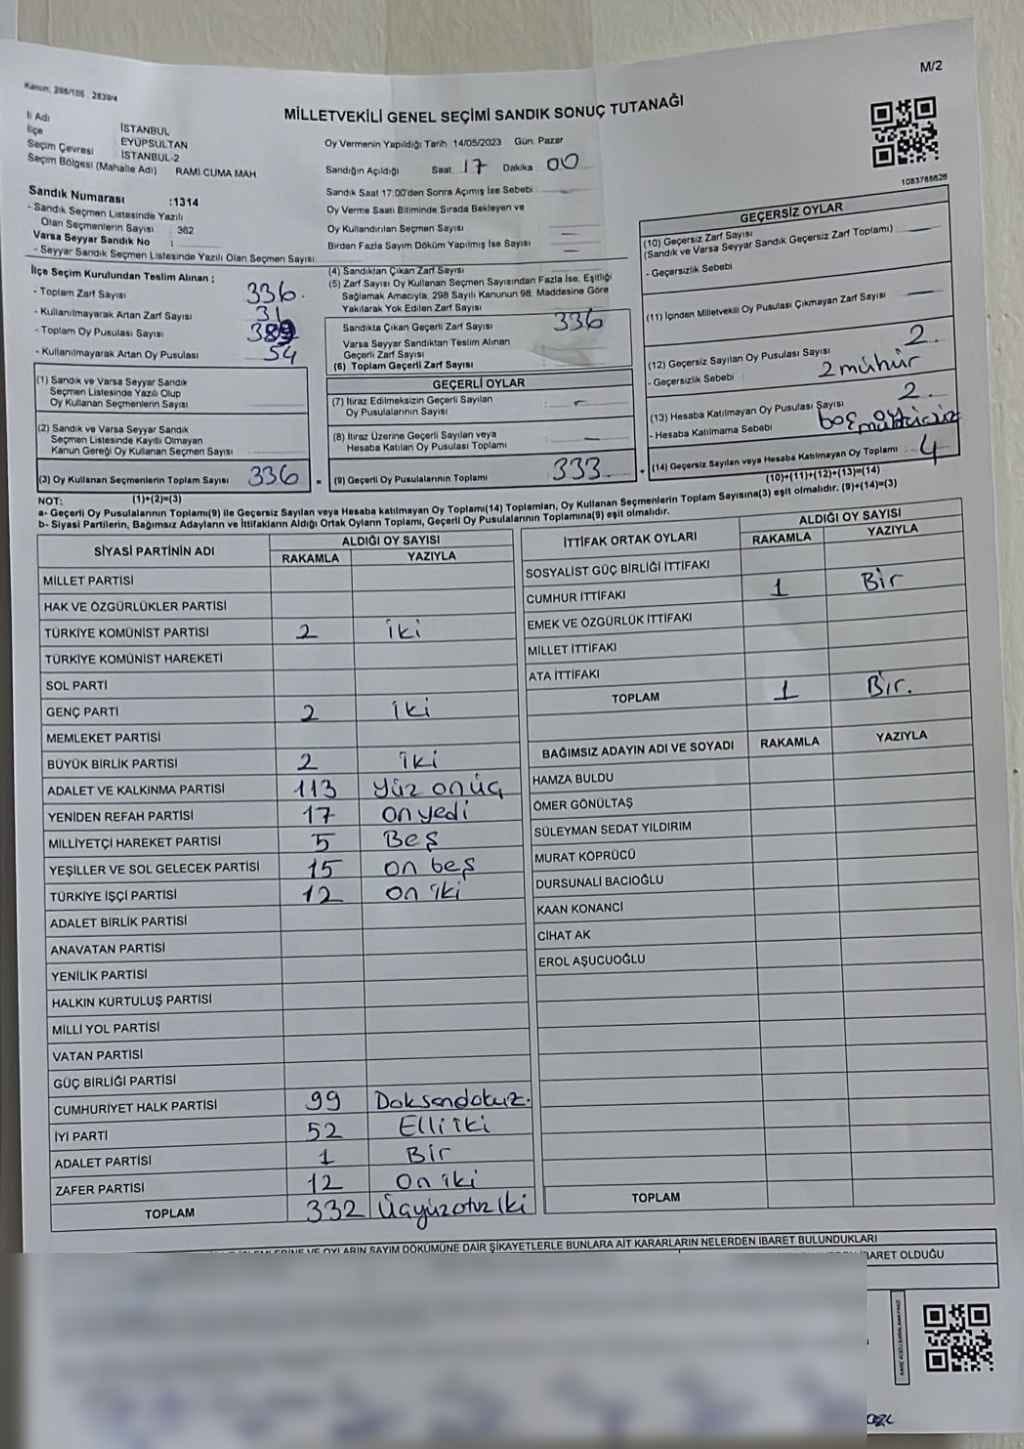 M/2
MİLLETVEKİLİ GENEL SEÇİMİ SANDIK SONUÇ TUTANAĞI
İl Adı İSTANBUL
İlçe EYÜPSULTAN
Seçim Çevresi İSTANBUL-2
Seçim Bölgesi (Mahalle Adı) RAMİ CUMA MAH
Sandık Numarası :1314
- Sandık Seçmen Listesinde Yazılı
Olan Seçmenlerin Sayısı 362
Varsa Seyyar Sandık No :
- Seyyar Sandık Seçmen Listesinde Yazılı Olan Seçmen Sayısı
Oy Vermenin Yapıldığı Tarih 14/05/2023 Gün. Pazar
Sandığın Açıldığı Saat 17 Dakika 00
Sandık Saat 17.00'den Sonra Açılmış İse Sebebi
Oy Verme Saati Bitiminde Sırada Bekleyen ve
Oy Kullandırılan Seçmen Sayısı
Birden Fazla Sayım Döküm Yapılmış İse Sayısı
1083788626
İlçe Seçim Kurulundan Teslim Alınan ;
- Toplam Zarf Sayısı 336
- Kullanılmayarak Artan Zarf Sayısı
- Toplam Oy Pusulası Sayısı
- Kullanılmayarak Artan Oy Pusulası 54
(1) Sandık ve Varsa Seyyar Sandık
Seçmen Listesinde Yazılı Olup
Oy Kullanan Seçmenlerin Sayısı
(2) Sandık ve Varsa Seyyar Sandık
Seçmen Listesinde Kayıtlı Olmayan
Kanun Gereği Oy Kullanan Seçmen Sayısı
(3) Oy Kullanan Seçmenlerin Toplam Sayısı 336
(1)+(2)=(3)
(4) Sandıktan Çıkan Zarf Sayısı
(5) Zarf Sayısı Oy Kullanan Seçmen Sayısından Fazla İse, Eşitliği
Sağlamak Amacıyla, 298 Sayılı Kanunun 98. Maddesine Göre
Yakılarak Yok Edilen Zarf Sayısı
Sandıkta Çıkan Geçerli Zarf Sayısı 336
Varsa Seyyar Sandıktan Teslim Alınan
Geçerli Zarf Sayısı
(6) Toplam Geçerli Zarf Sayısı
GEÇERLİ OYLAR
(7) İtiraz Edilmeksizin Geçerli Sayılan
Oy Pusulalarının Sayısı
(8) İtiraz Üzerine Geçerli Sayılan veya
Hesaba Katılan Oy Pusulası Toplamı
(9) Geçerli Oy Pusulalarının Toplamı 333
GEÇERSİZ OYLAR
(10) Geçersiz Zarf Sayısı
(Sandık ve Varsa Seyyar Sandık Geçersiz Zarf Toplamı)
- Geçersizlik Sebebi
(11) İçinden Milletvekili Oy Pusulası Çıkmayan Zarf Sayısı
(12) Geçersiz Sayılan Oy Pusulası Sayısı 2.
- Geçersizlik Sebebi : 2 mühür
(13) Hesaba Katılmayan Oy Pusulası Sayısı 2.
- Hesaba Katılmama Sebebi : boş oy
(14) Geçersiz Sayılan veya Hesaba Katılmayan Oy Toplamı 4
(10)+(11)+(12)+(13)=(14)
NOT:
a- Geçerli Oy Pusulalarının Toplamı(9) ile Geçersiz Sayılan veya Hesaba katılmayan Oy Toplamı(14) Toplamları, Oy Kullanan Seçmenlerin Toplam Sayısına(3) eşit olmalıdır. (9)+(14)=(3)
b- Siyasi Partilerin, Bağımsız Adayların ve İttifakların Aldığı Ortak Oyların Toplamı, Geçerli Oy Pusulalarının Toplamına(9) eşit olmalıdır.
SİYASİ PARTİNİN ADI ALDIĞI OY SAYISI
RAKAMLA YAZIYLA
MİLLET PARTİSİ
HAK VE ÖZGÜRLÜKLER PARTİSİ
TÜRKİYE KOMÜNİST PARTİSİ 2 iki
TÜRKİYE KOMÜNİST HAREKETİ
SOL PARTİ
GENÇ PARTİ 2 iki
MEMLEKET PARTİSİ
BÜYÜK BİRLİK PARTİSİ 2 iki
ADALET VE KALKINMA PARTİSİ 113 yüz onüç
YENİDEN REFAH PARTİSİ 17 onyedi
MİLLİYETÇİ HAREKET PARTİSİ 5 Beş
YEŞİLLER VE SOL GELECEK PARTİSİ 15 on beş
TÜRKİYE İŞÇİ PARTİSİ 12 on iki
ADALET BİRLİK PARTİSİ
ANAVATAN PARTİSİ
YENİLİK PARTİSİ
HALKIN KURTULUŞ PARTİSİ
MİLLİ YOL PARTİSİ
VATAN PARTİSİ
GÜÇ BİRLİĞİ PARTİSİ
CUMHURİYET HALK PARTİSİ 99 Doksandokuz.
İYİ PARTİ 52 Elli iki
ADALET PARTİSİ 1 Bir
ZAFER PARTİSİ 12 On iki
TOPLAM 332 Üçyüzotuz iki
İTTİFAK ORTAK OYLARI ALDIĞI OY SAYISI
RAKAMLA YAZIYLA
SOSYALİST GÜÇ BİRLİĞİ İTTİFAKI
CUMHUR İTTİFAKI 1 Bir
EMEK VE ÖZGÜRLÜK İTTİFAKI
MİLLET İTTİFAKI
ATA İTTİFAKI
TOPLAM 1 Bir.
BAĞIMSIZ ADAYIN ADI VE SOYADI RAKAMLA YAZIYLA
HAMZA BULDU
ÖMER GÖNÜLTAŞ
SÜLEYMAN SEDAT YILDIRIM
MURAT KÖPRÜCÜ
DURSUNALİ BACIOĞLU
KAAN KONANCİ
CİHAT AK
EROL AŞUCUOĞLU
TOPLAM
OYLARIN SAYIM DÖKÜMÜNE DAİR ŞİKAYETLERLE BUNLARA AİT KARARLARIN NELERDEN İBARET BULUNDUKLARI
İBARET OLDUĞU